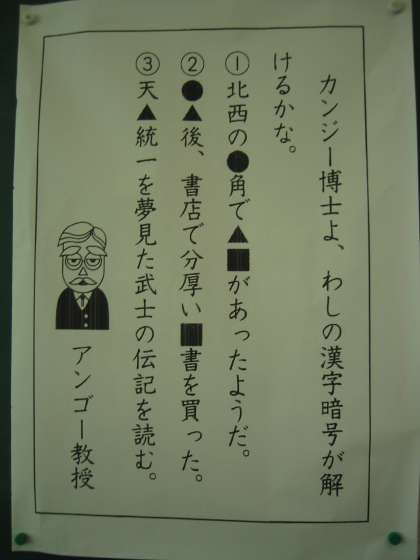 カンジー博士よ、わしの漢字暗号が解
けるかな。
①北西の●角で▲■があったようだ。
②●▲後、書店で分厚い■書を買った。
③天▲統一を夢見た武士の伝記を読む。
アンゴー教授